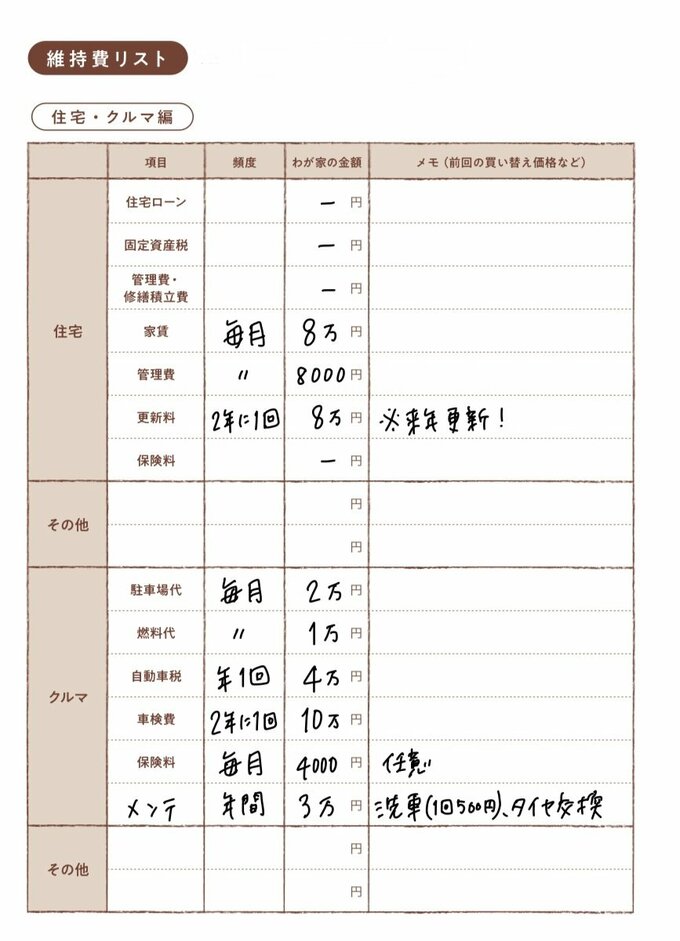 維持費リスト
住宅・クルマ編
項目 頻度 わが家の金額 メモ（前回の買い替え価格など）
住宅
住宅ローン ー 円
固定資産税 ー 円
管理費・
修繕積立費 ー 円
家賃 毎月 8万 円
管理費 〃 8000 円
更新料 2年に1回 8万 円 ※来年更新！
保険料 ー 円
その他
円
円
クルマ
駐車場代 毎月 2万 円
燃料代 〃 1万 円
自動車税 年1回 4万 円
車検費 2年に1回 10万 円
保険料 毎月 4000 円 任意
メンテ 年間 3万 円 洗車(1回500円)、タイヤ交換
その他
円
円